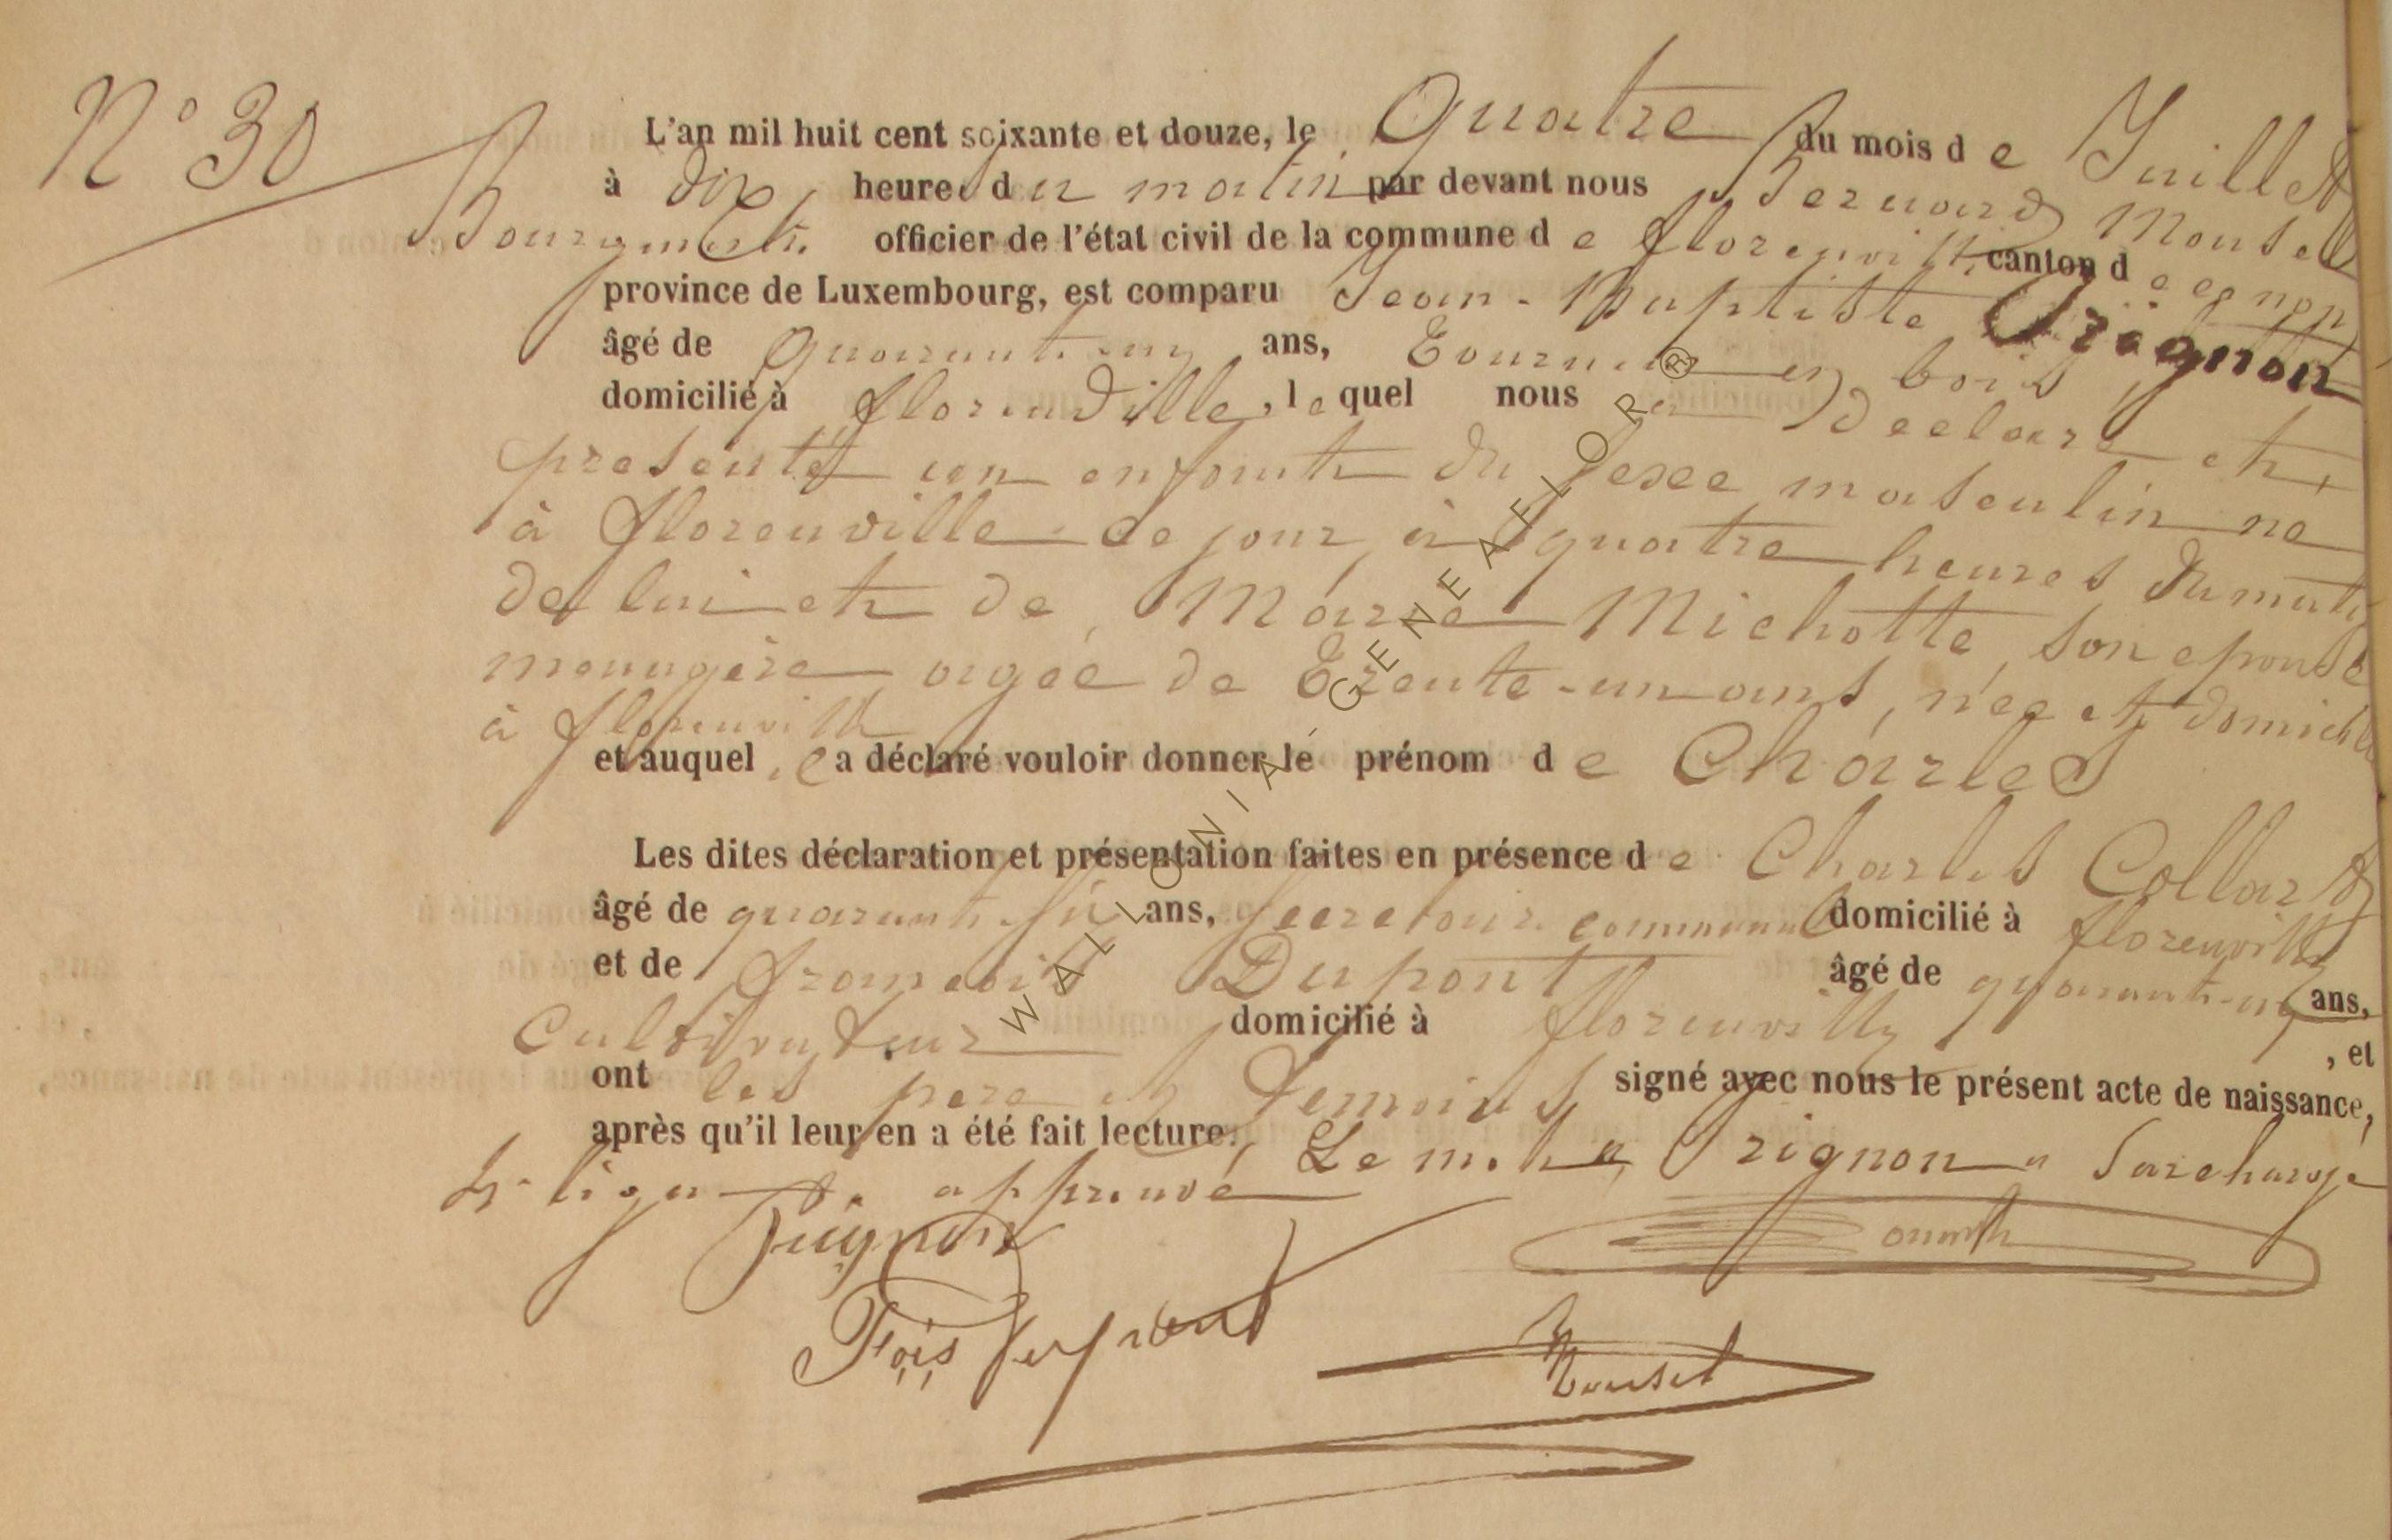 N° 30
L'an mil huit cent soixante et douze, le quatre du mois de Juillet
à dix heures du matin par devant nous Bernard Mousel
Bourgmestre officier de l'état civil de la commune de florenville canton d
province de Luxembourg, est comparu Jean-Baptiste Trignon
âgé de quarante-un ans, Tourneur en bois,
domicilié à florenville, lequel nous a déclaré et
presenté un enfant du sexe masculin né
à florenville ce jour à quatre heures du matin
de lui et de Marie Michotte, son epouse
menagère agée de Trente-un ans, née et domiciliée
à florenville
et auquel il a déclaré vouloir donner le prénom de Charles
Les dites déclaration et présentation faites en présence de Charles Collard
âgé de ans, Secretaire communal domicilié à florenville
et de françois Dupont âgé de quarante-un ans,
Cultivateur domicilié à florenville , et
ont les pere et Temoins signé avec nous le présent acte de naissance,
après qu'il leur en a été fait lecture. Le mot « Trignon » Surchargé
ligne approuvé
Trignon
Fçois Dupont
Mousel
WALLONIA GENEAFLOR®